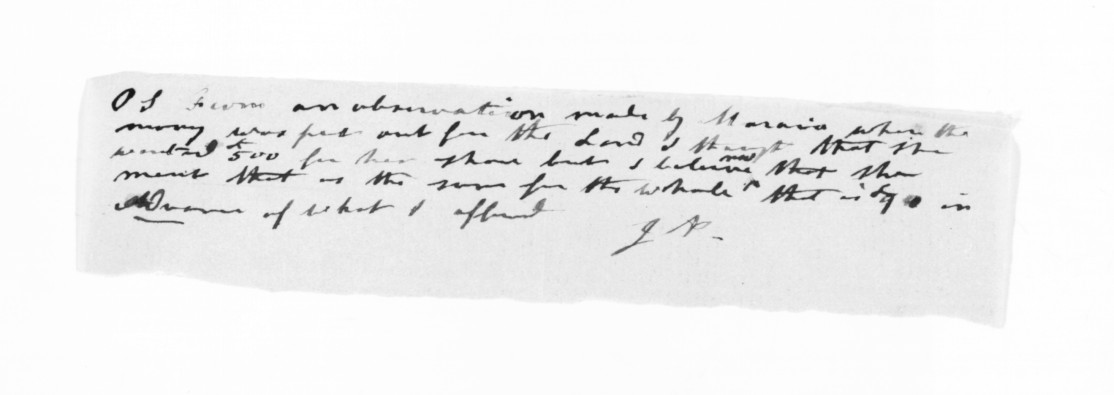 O S From an observation made by Maraia when the
mony was put out for the Land I thougt that she
wanted £500 for her share but I beleive now that she
ment that as the sum for the whole that is $90 in
Advance of what I offerd
J A